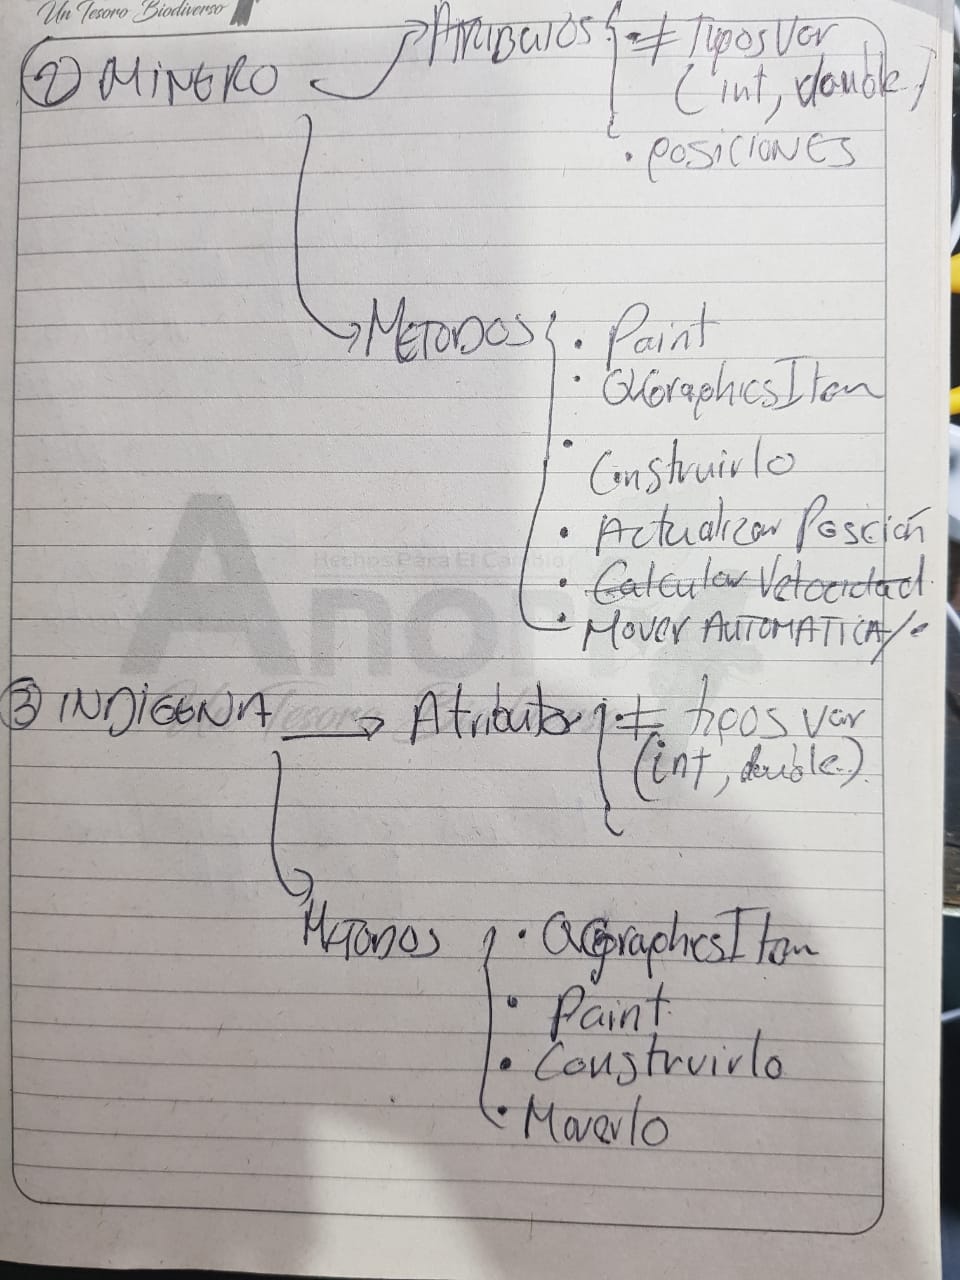 Un Tesoro Biodiverso
2) MINERO
Atributos
· ≠ Tipos Var
(int, double)
· POSICIONES
METODOS
· Paint
· QGraphicsItem
· Construirlo
· Actualizar Posición
Hechos Para El Cambio
· Calcular Velocidad
Anorí
· Mover AUTOMATICA/.
3) INDÍGENA
Un Tesoro
Atributos
· ≠ tipos var
(int, double)
METODOS
· QGraphicsItem
· Paint
· Construirlo
· Moverlo